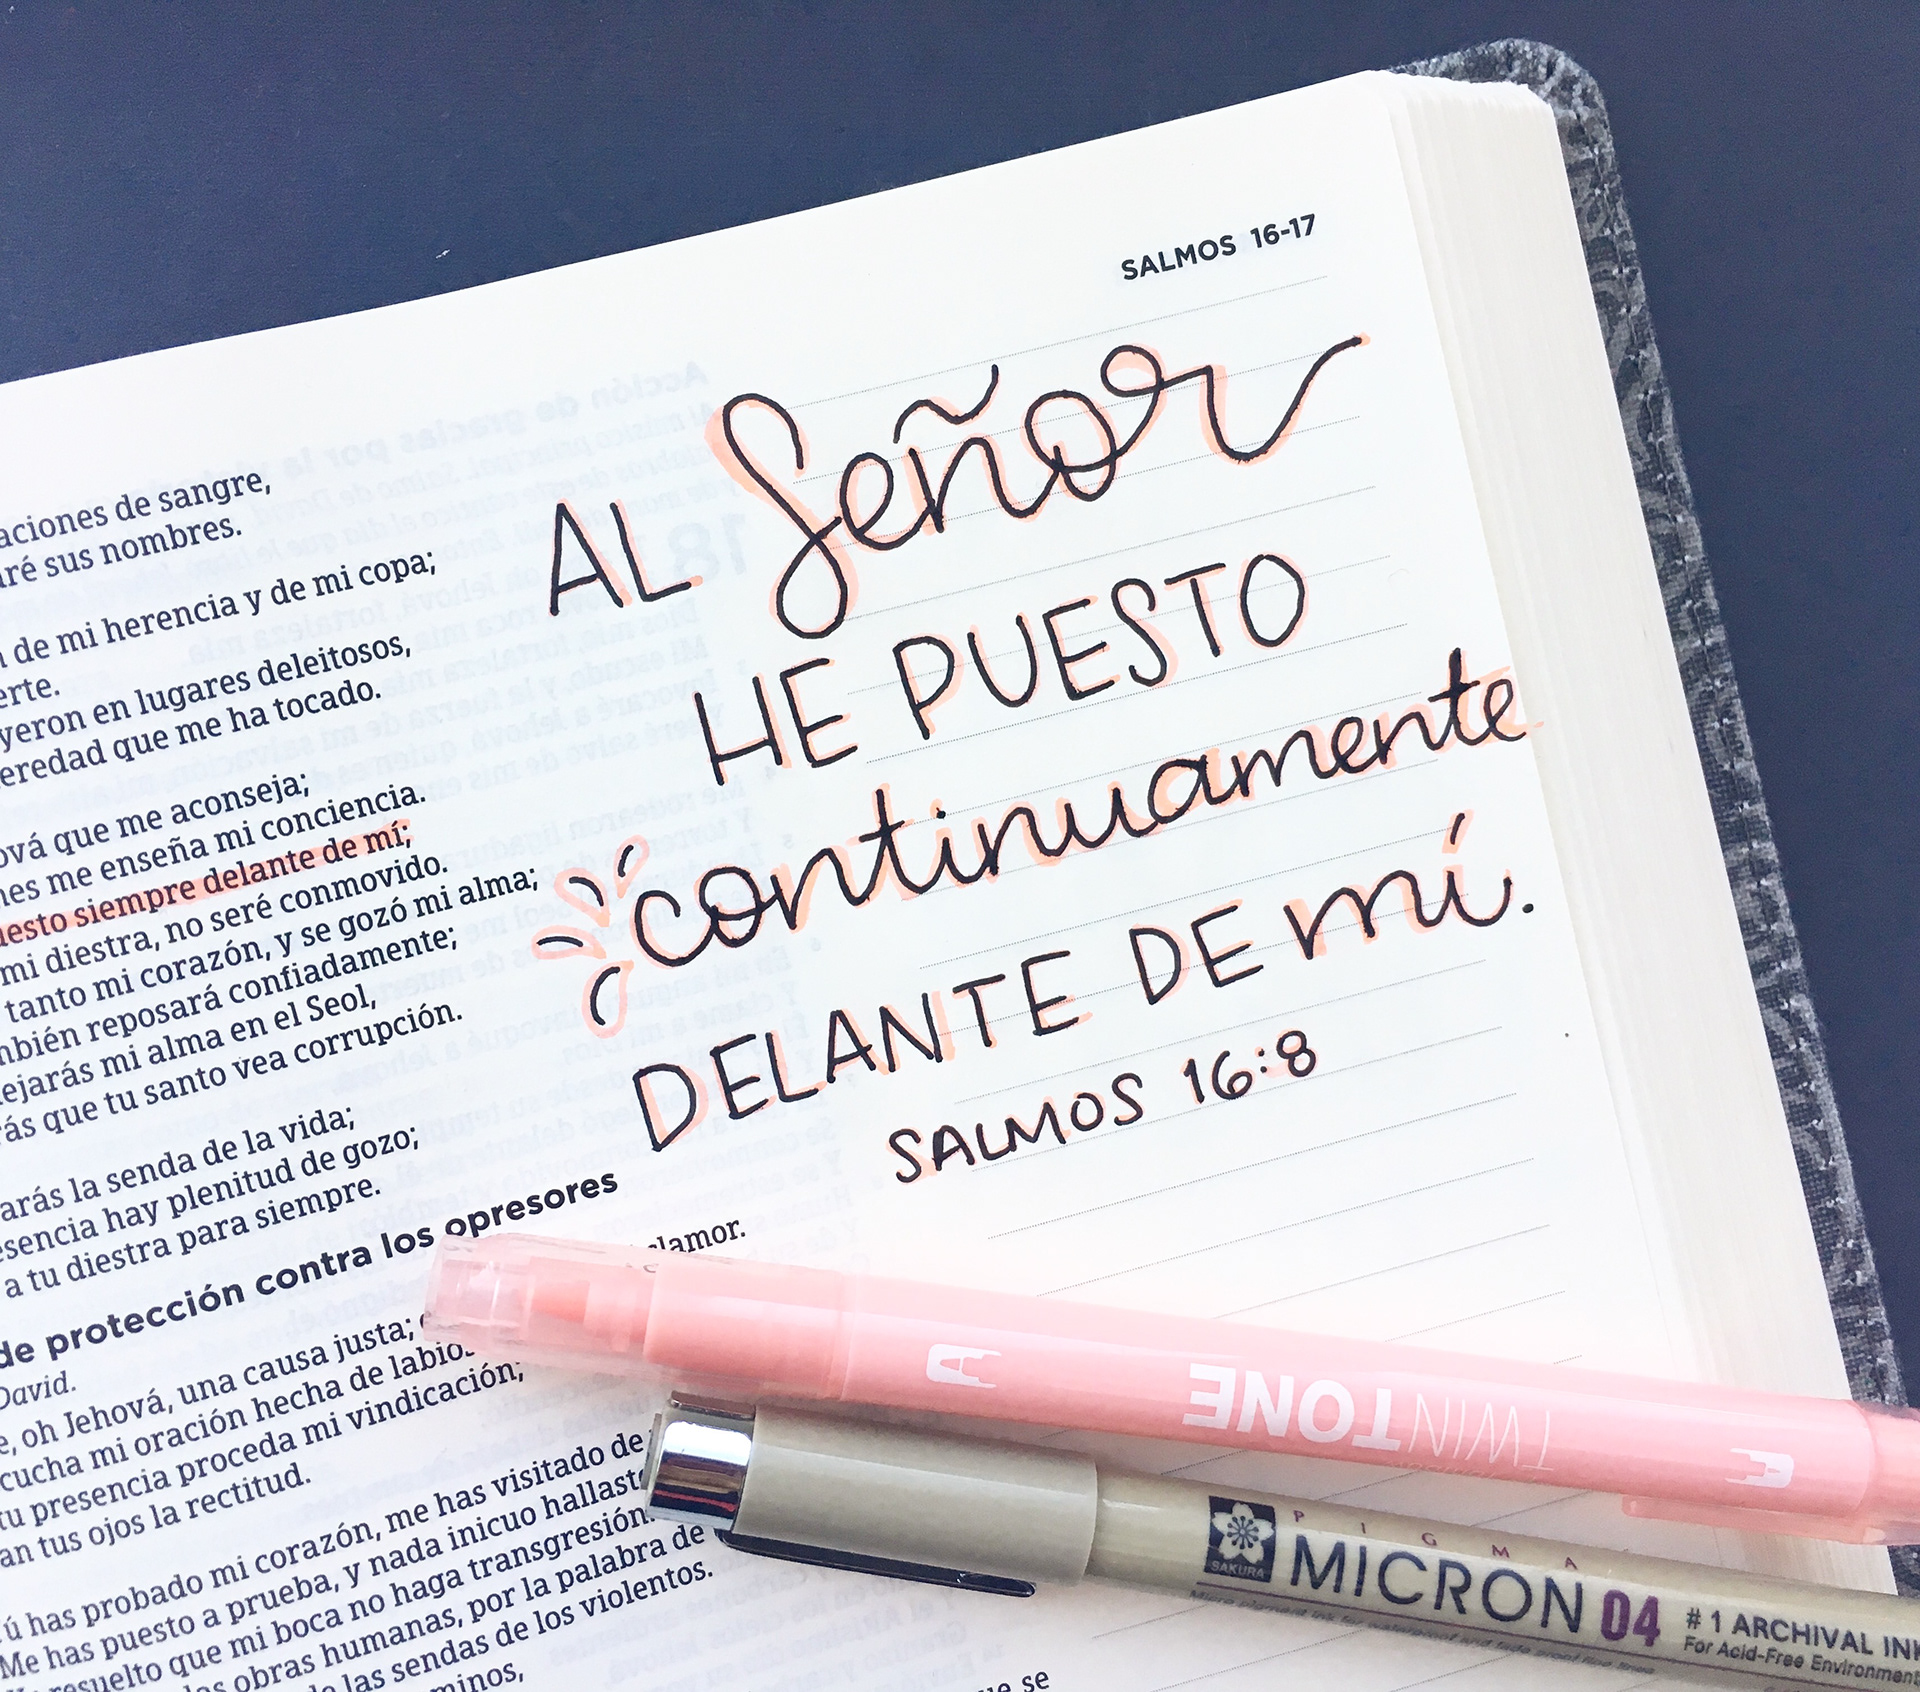 SALMOS 16-17
AL Señor
HE PUESTO
continuamente
DELANTE DE mí.
SALMOS 16:8
aciones de sangre,
sus nombres.
de mi herencia y de mi copa;
en lugares deleitosos,
que me ha tocado.
que me aconseja;
me enseña mi conciencia.
siempre delante de mí;
mi diestra, no seré conmovido.
tanto mi corazón, y se gozó mi alma;
reposará confiadamente;
mi alma en el Seol,
que tu santo vea corrupción.
la senda de la vida;
hay plenitud de gozo;
a tu diestra para siempre.
de protección contra los opresores
David.
clamor.
oh Jehová, una causa justa;
mi oración hecha de labios
tu presencia proceda mi vindicación;
tus ojos la rectitud.
Tú has probado mi corazón, me has visitado de
Me has puesto a prueba, y nada inicuo hallaste
resuelto que mi boca no haga transgresión.
obras humanas, por la palabra de
de las sendas de los violentos.
se
TWINTONE
SAKURA
PIGMA
MICRON 04
#1 ARCHIVAL INK
For Acid-Free Environment